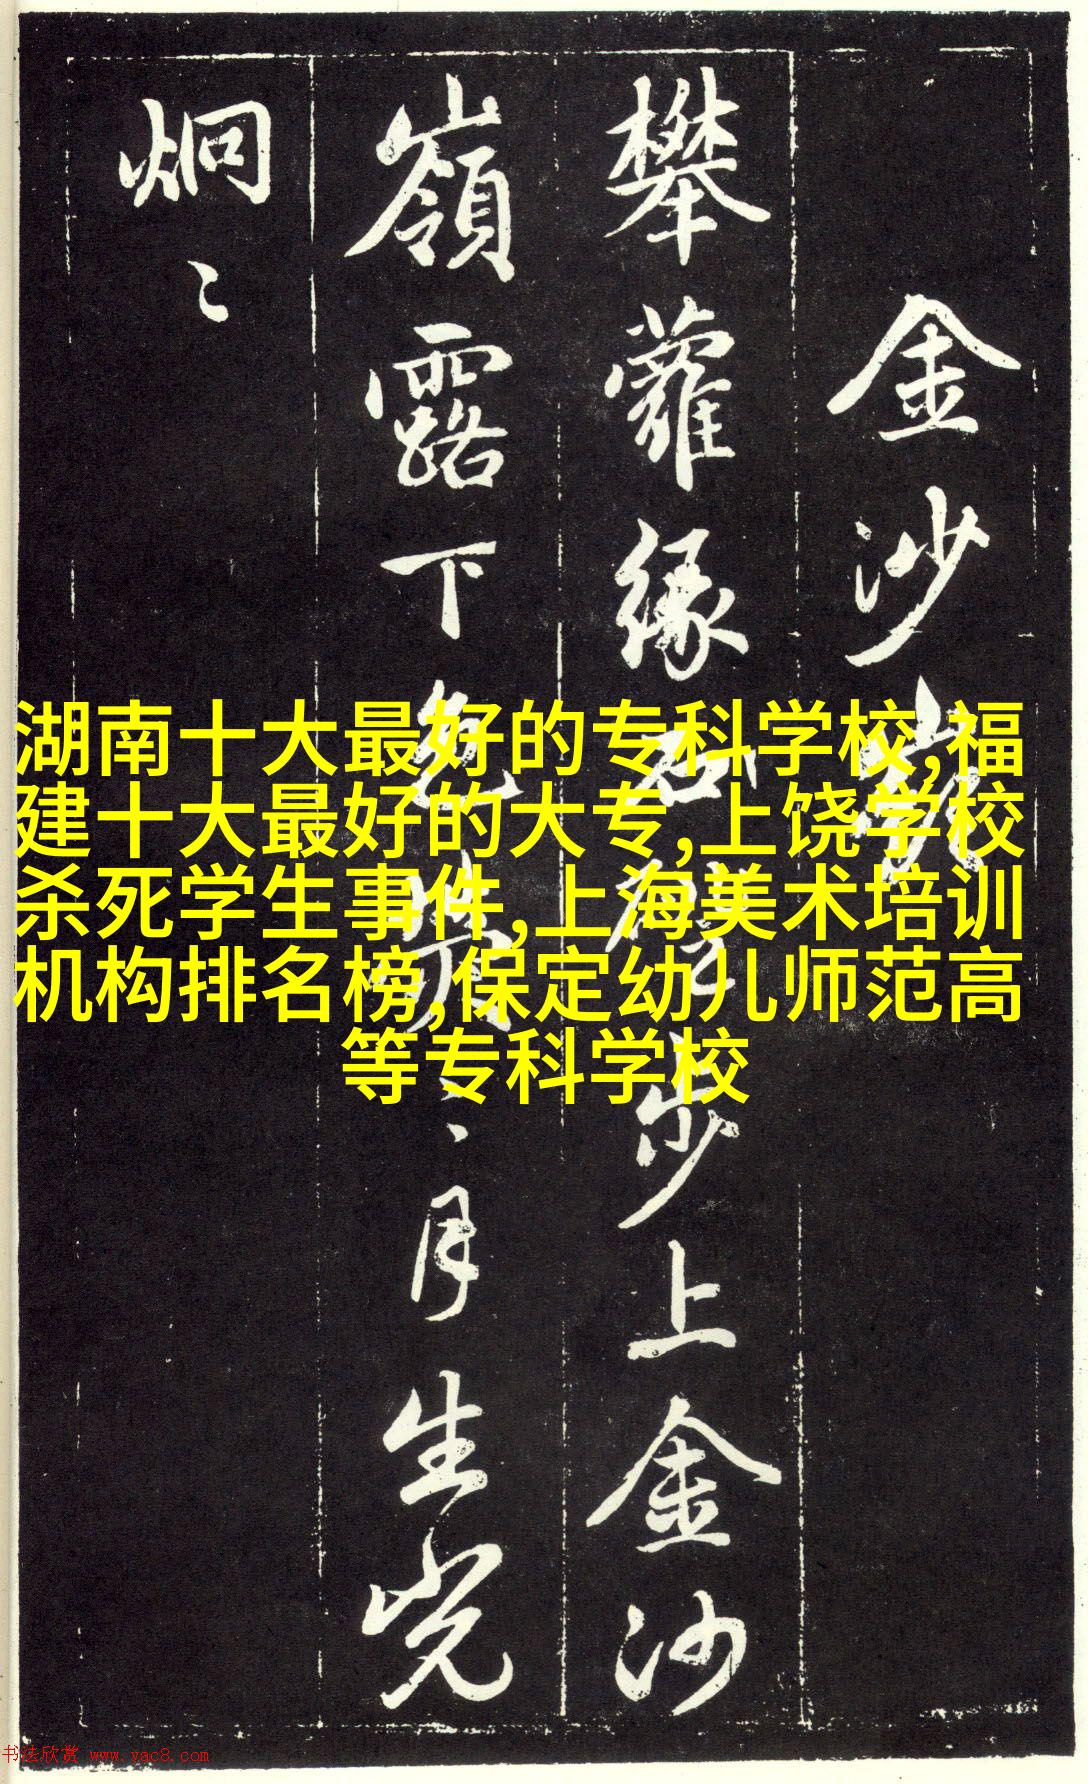 金沙嶺
攀蘿緣石磴步上金沙
嶺露下色熒〻月生光
炯〻
湖南十大最好的专科学校,福
建十大最好的大专,上饶学校
杀死学生事件,上海美术培训
机构排名榜,保定幼儿师范高
等专科学校
书法欣赏 www.yac8.com